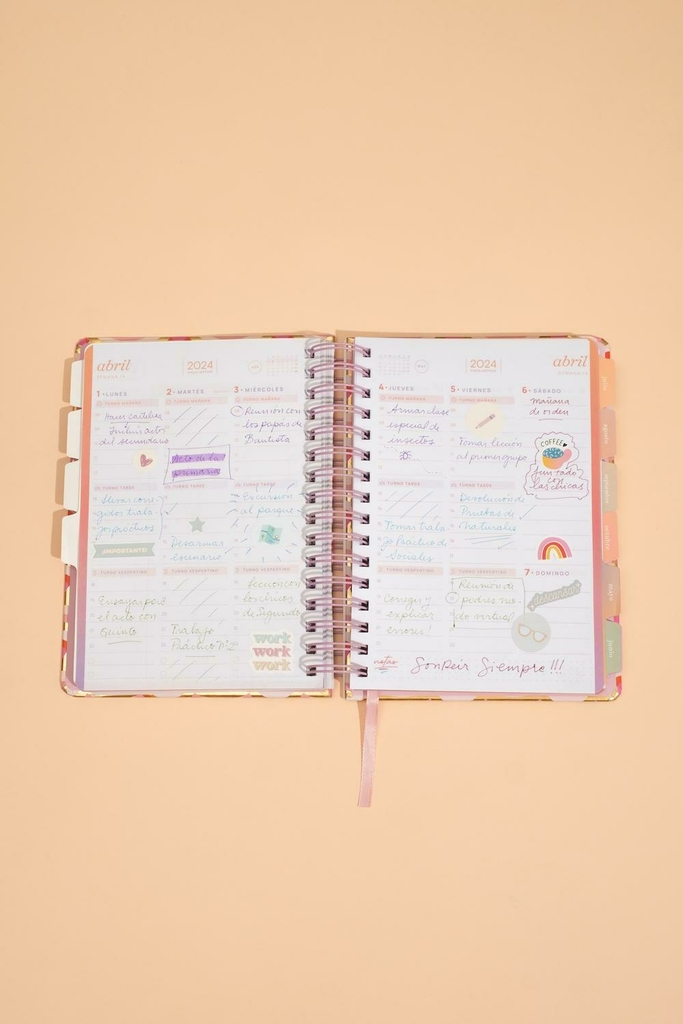 abril
2024
1 • LUNES
2 • MARTES
3 • MIÉRCOLES
TURNO MAÑANA
TURNO MAÑANA
TURNO MAÑANA
Hacer cartelera
del secundario
Acto de la
primaria
Reunion con
los papas de
Bautista
TURNO TARDE
TURNO TARDE
TURNO TARDE
¡IMPORTANTE!
Desarmar
escenario
Excursión
al parque
TURNO VESPERTINO
TURNO VESPERTINO
TURNO VESPERTINO
Ensayar para
el acto con
Quinto
Trabajo
Práctico N°2
los chicos
de Segundo
work
work
work
2024
abril
4 • JUEVES
5 • VIERNES
6 • SÁBADO
TURNO MAÑANA
TURNO MAÑANA
Armar clase
especial de
insectos
Tomar lección
al primer grupo
mañana
de orden
COFFEE
tarde
con
las chicas
TURNO TARDE
TURNO TARDE
Tomar traba
jo práctico de
Sociales
Devolución de
Pruebas de
naturales
TURNO VESPERTINO
TURNO VESPERTINO
7 • DOMINGO
Corregir y
explicar
errores!
Reunión de
padres mo-
do virtual
descansar
notas
Sonreir Siempre!!!
julio
agosto
junio